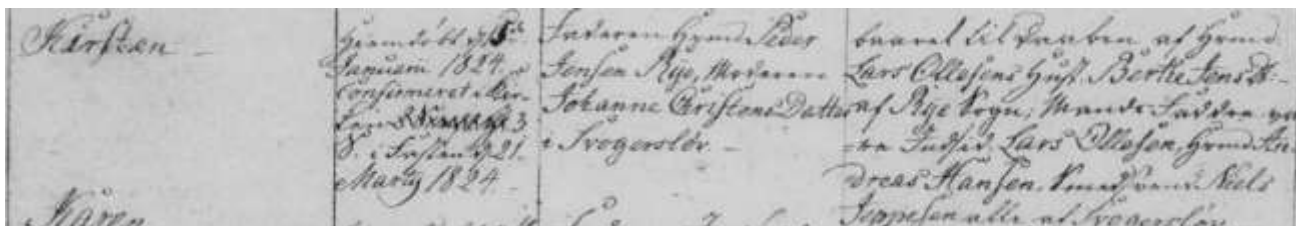 Kirsten
Hiemdöbt d. 5te
Januarii 1824
Confirmeret i Kir-
ken 3
S. i Fasten d. 21
Martij 1824.
Faderen Hmd. Peder
Jensen Rye, Moderen
Johanne Christens Datter
i Svogerslöv.
baaret til Daaben af Hmd.
Lars Ollesens Hust. Berthe Jens D.
af Rye Sogn; Mands Faddre va-
re Lars Ollesen, Hmd An-
dreas Hansen, Niels
Jeppesen alle af Svogerslöv
Karen